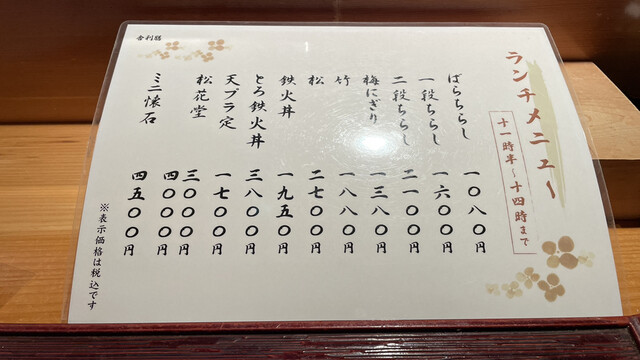 ランチメニュー
十一時半~十四時まで
ばらちらし 一〇八〇円
一段ちらし 一六〇〇円
二段ちらし 二一〇〇円
梅にぎり 一三八〇円
竹 一八八〇円
松 二七〇〇円
鉄火丼 一九五〇円
とろ鉄火丼 三八〇〇円
天プラ定 一七〇〇円
松花堂 三〇〇〇円
四〇〇〇円
ミニ懐石 四五〇〇円
※表示価格は税込です
舎利膳